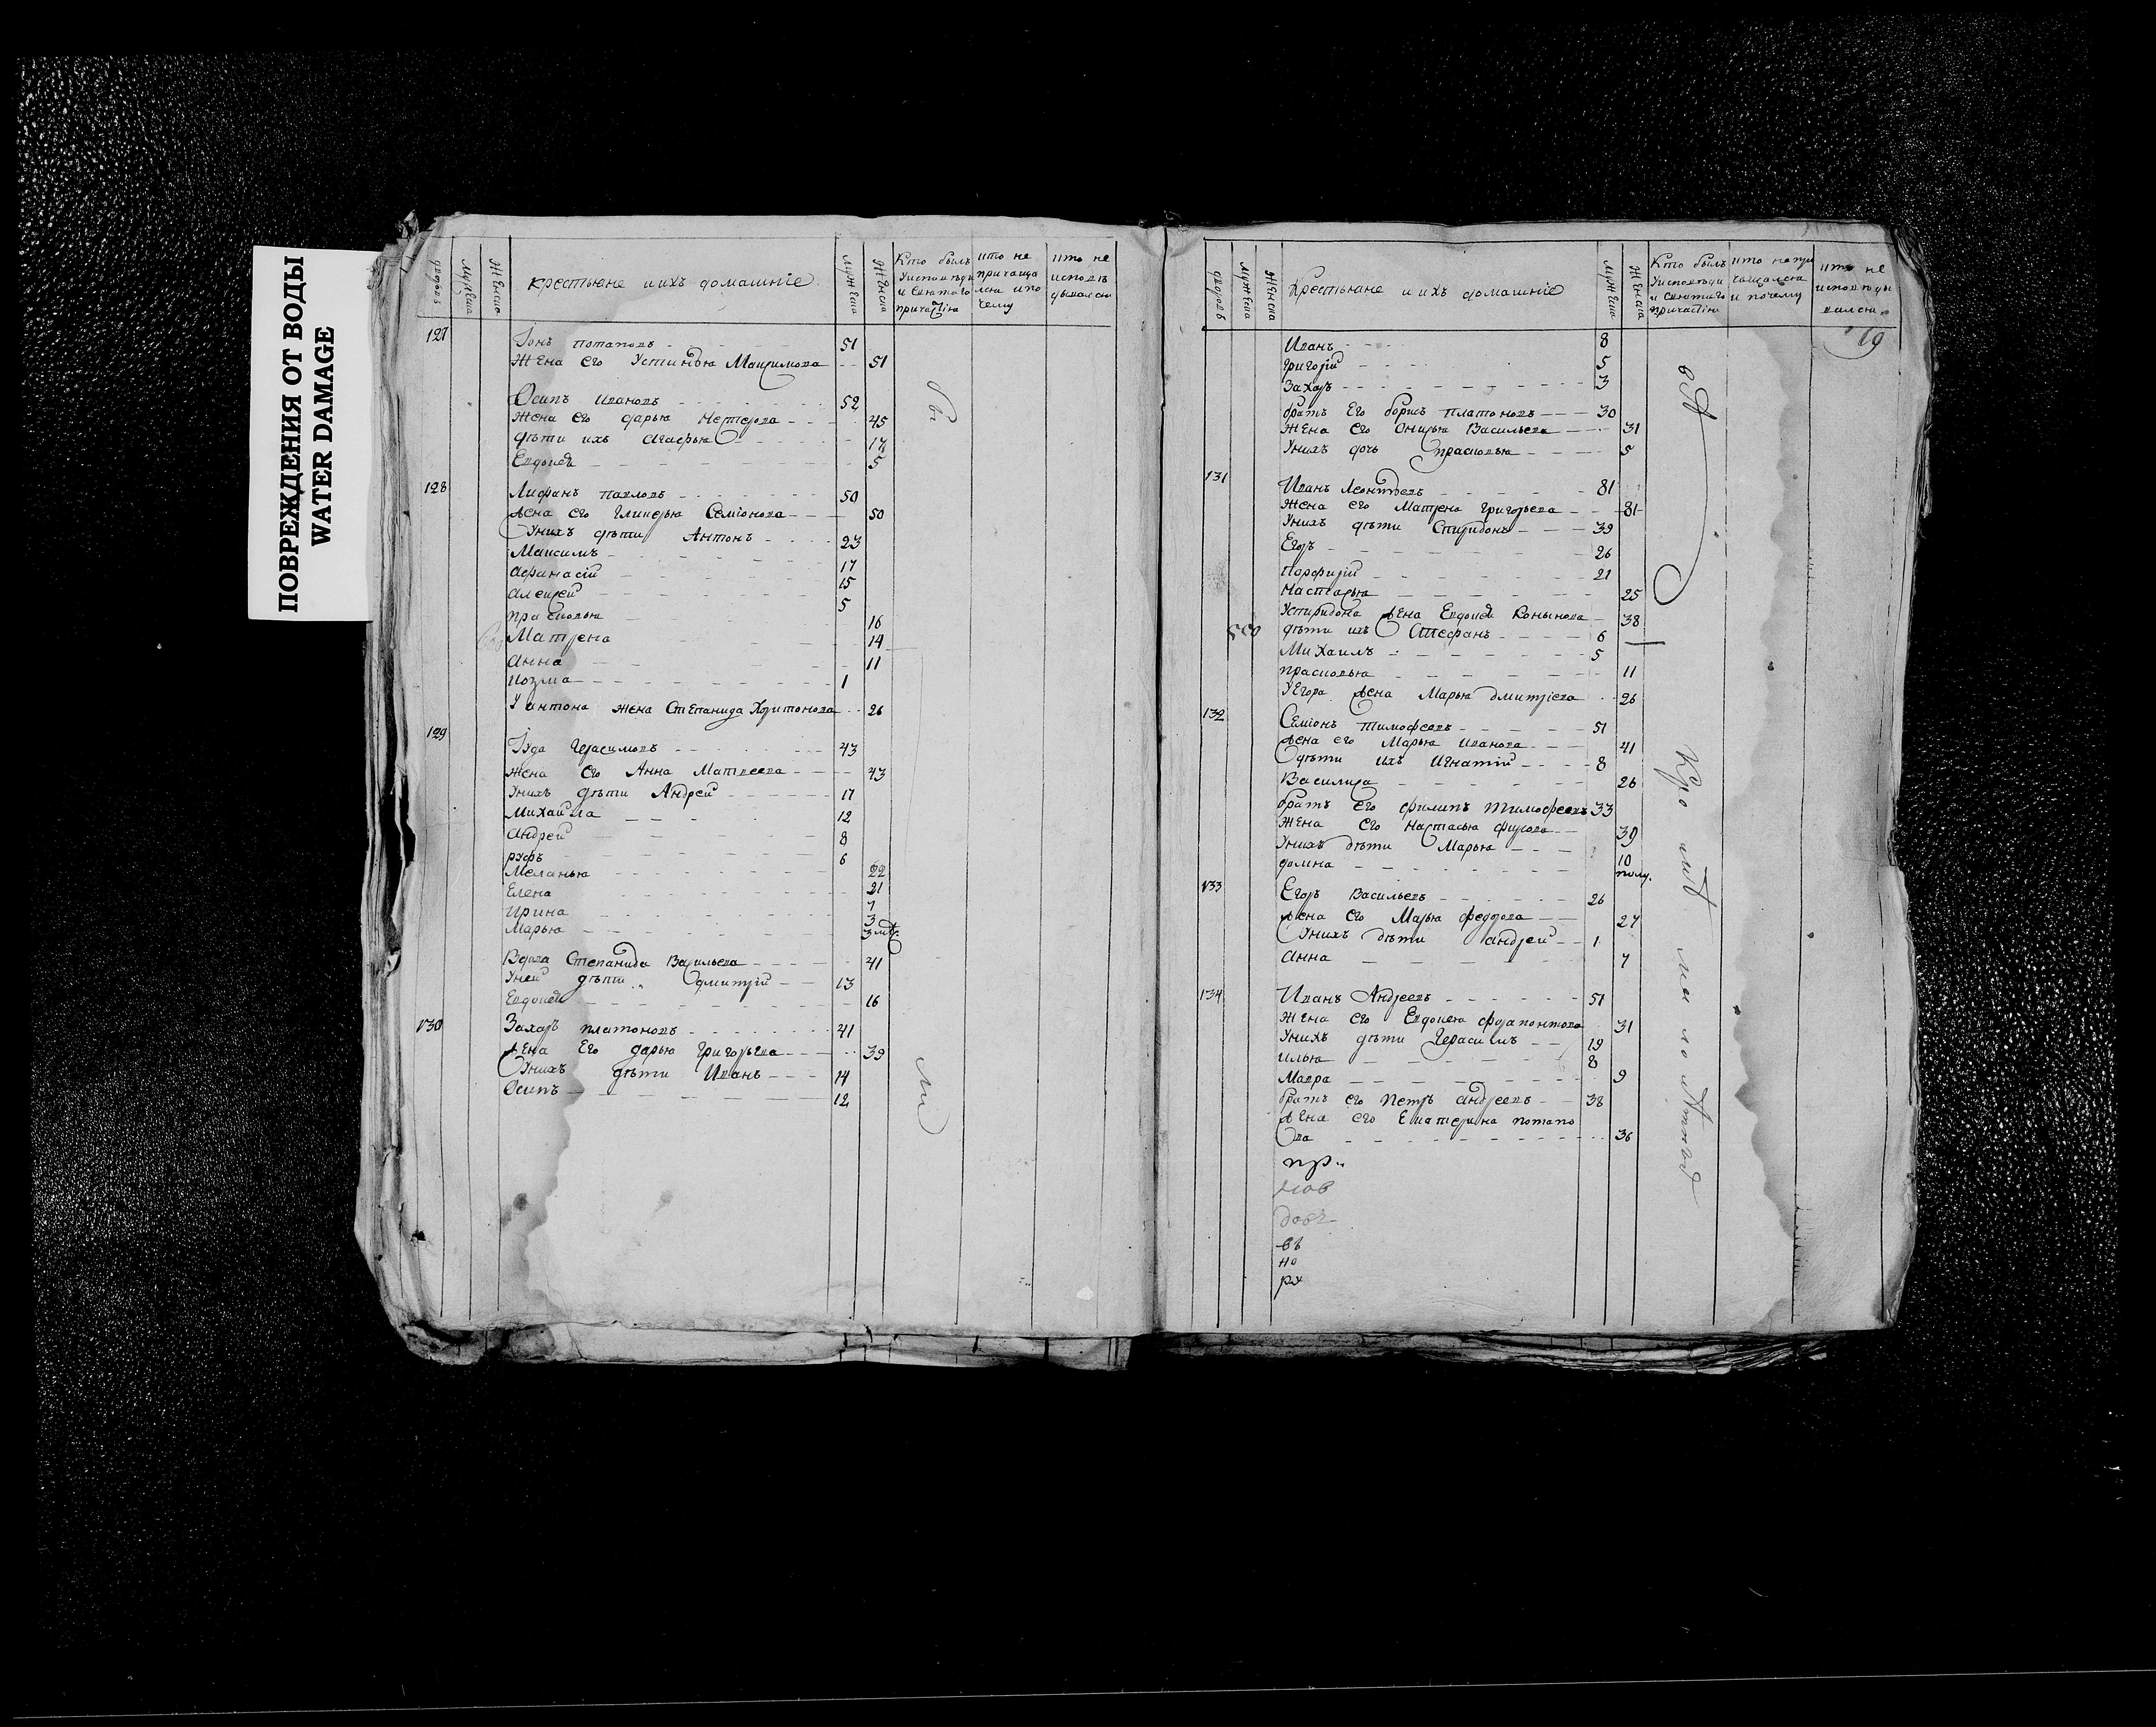 ПОВРЕЖДЕНИЯ ОТ ВОДЫ
WATER DAMAGE
дворовъ
Мужеска
Женска
крестьяне и ихъ домашніе
мужеска
Женска
Кто былъ
Уисповѣди
и Святаго
причастія
кто не
причаща
лся и по
чему
кто не
исповѣ
дывался
127
Іонъ потаповъ 51
Жена его Устинья Маѯимова 51
Осипъ Ивановъ 52
Жена его дарья Нестерова 45
дѣти ихъ Агафья 17
Евдокея 5
128
Лифанъ павловъ 50
жена его Гликерья Семіонова 50
Уних дѣти Антонъ 23
Маѯимъ 17
Афанасій 15
Алеѯей 5
прасковья 16
Матрена 14
Анна 11
козма 1
У антона жена Степанида Харитонова 26
129
Іуда Герасимовъ 43
жена его Анна Матвеева 43
Унихъ дѣти Андрей 17
Михайла 12
Андрей 8
руфъ 6
Меланья 22
Елена 21
Ирина 7
Марья 3
Вдова Степанида Васильева 41
Уней дѣти Дмитрій 13
Евдокея 16
130
Захаръ платоновъ 41
жена Его дарья Григорьева 39
Унихъ дѣти Иванъ 14
Осипъ 12
дворовъ
Мужеска
Женска
крестьяне и ихъ домашніе
Мужеска
Женска
Кто былъ
Уисповѣди
и Святаго
причастія
кто непри
чащался
и почему
кто не
исповѣды
вался
19
Иванъ 8
Григорій 5
Захаръ 3
братъ Его борисъ платоновъ 30
Жена его Васильева 31
Унихъ дочь прасковья 5
131
Иванъ Леонтьевъ 81
Жена его Матрена Григорьева 81
Унихъ дѣти Спиридонъ 39
Егоръ 26
Порфирій 21
Настасья 25
Успиридона жена Евдокея Конынова 38
дѣти ихъ Стефанъ 6
Михаилъ 5
прасковья 11
УЕгора жена Марья дмитріева 26
132
Семіонъ тимофеевъ 51
жена его Марья Иванова 41
дѣти ихъ Игнатій 8
Василиса 26
братъ его филипъ тимофеевъ 33
жена его Настасья фирсова 39
Унихъ дѣти Марья 10
домна полу.
133
Егоръ Васильевъ 26
жена его Марья федорова 27
Унихъ дѣти Андрей 1
Анна 7
134
Иванъ Андреевъ 51
Жена его Евдокея фарапонтова 31
Унихъ дѣти Герасимъ 19
илья 8
Мавра 9
братъ его петръ андреевъ 38
жена его Екатерина потапо
ва 36
пр
нов
въ
но
рх